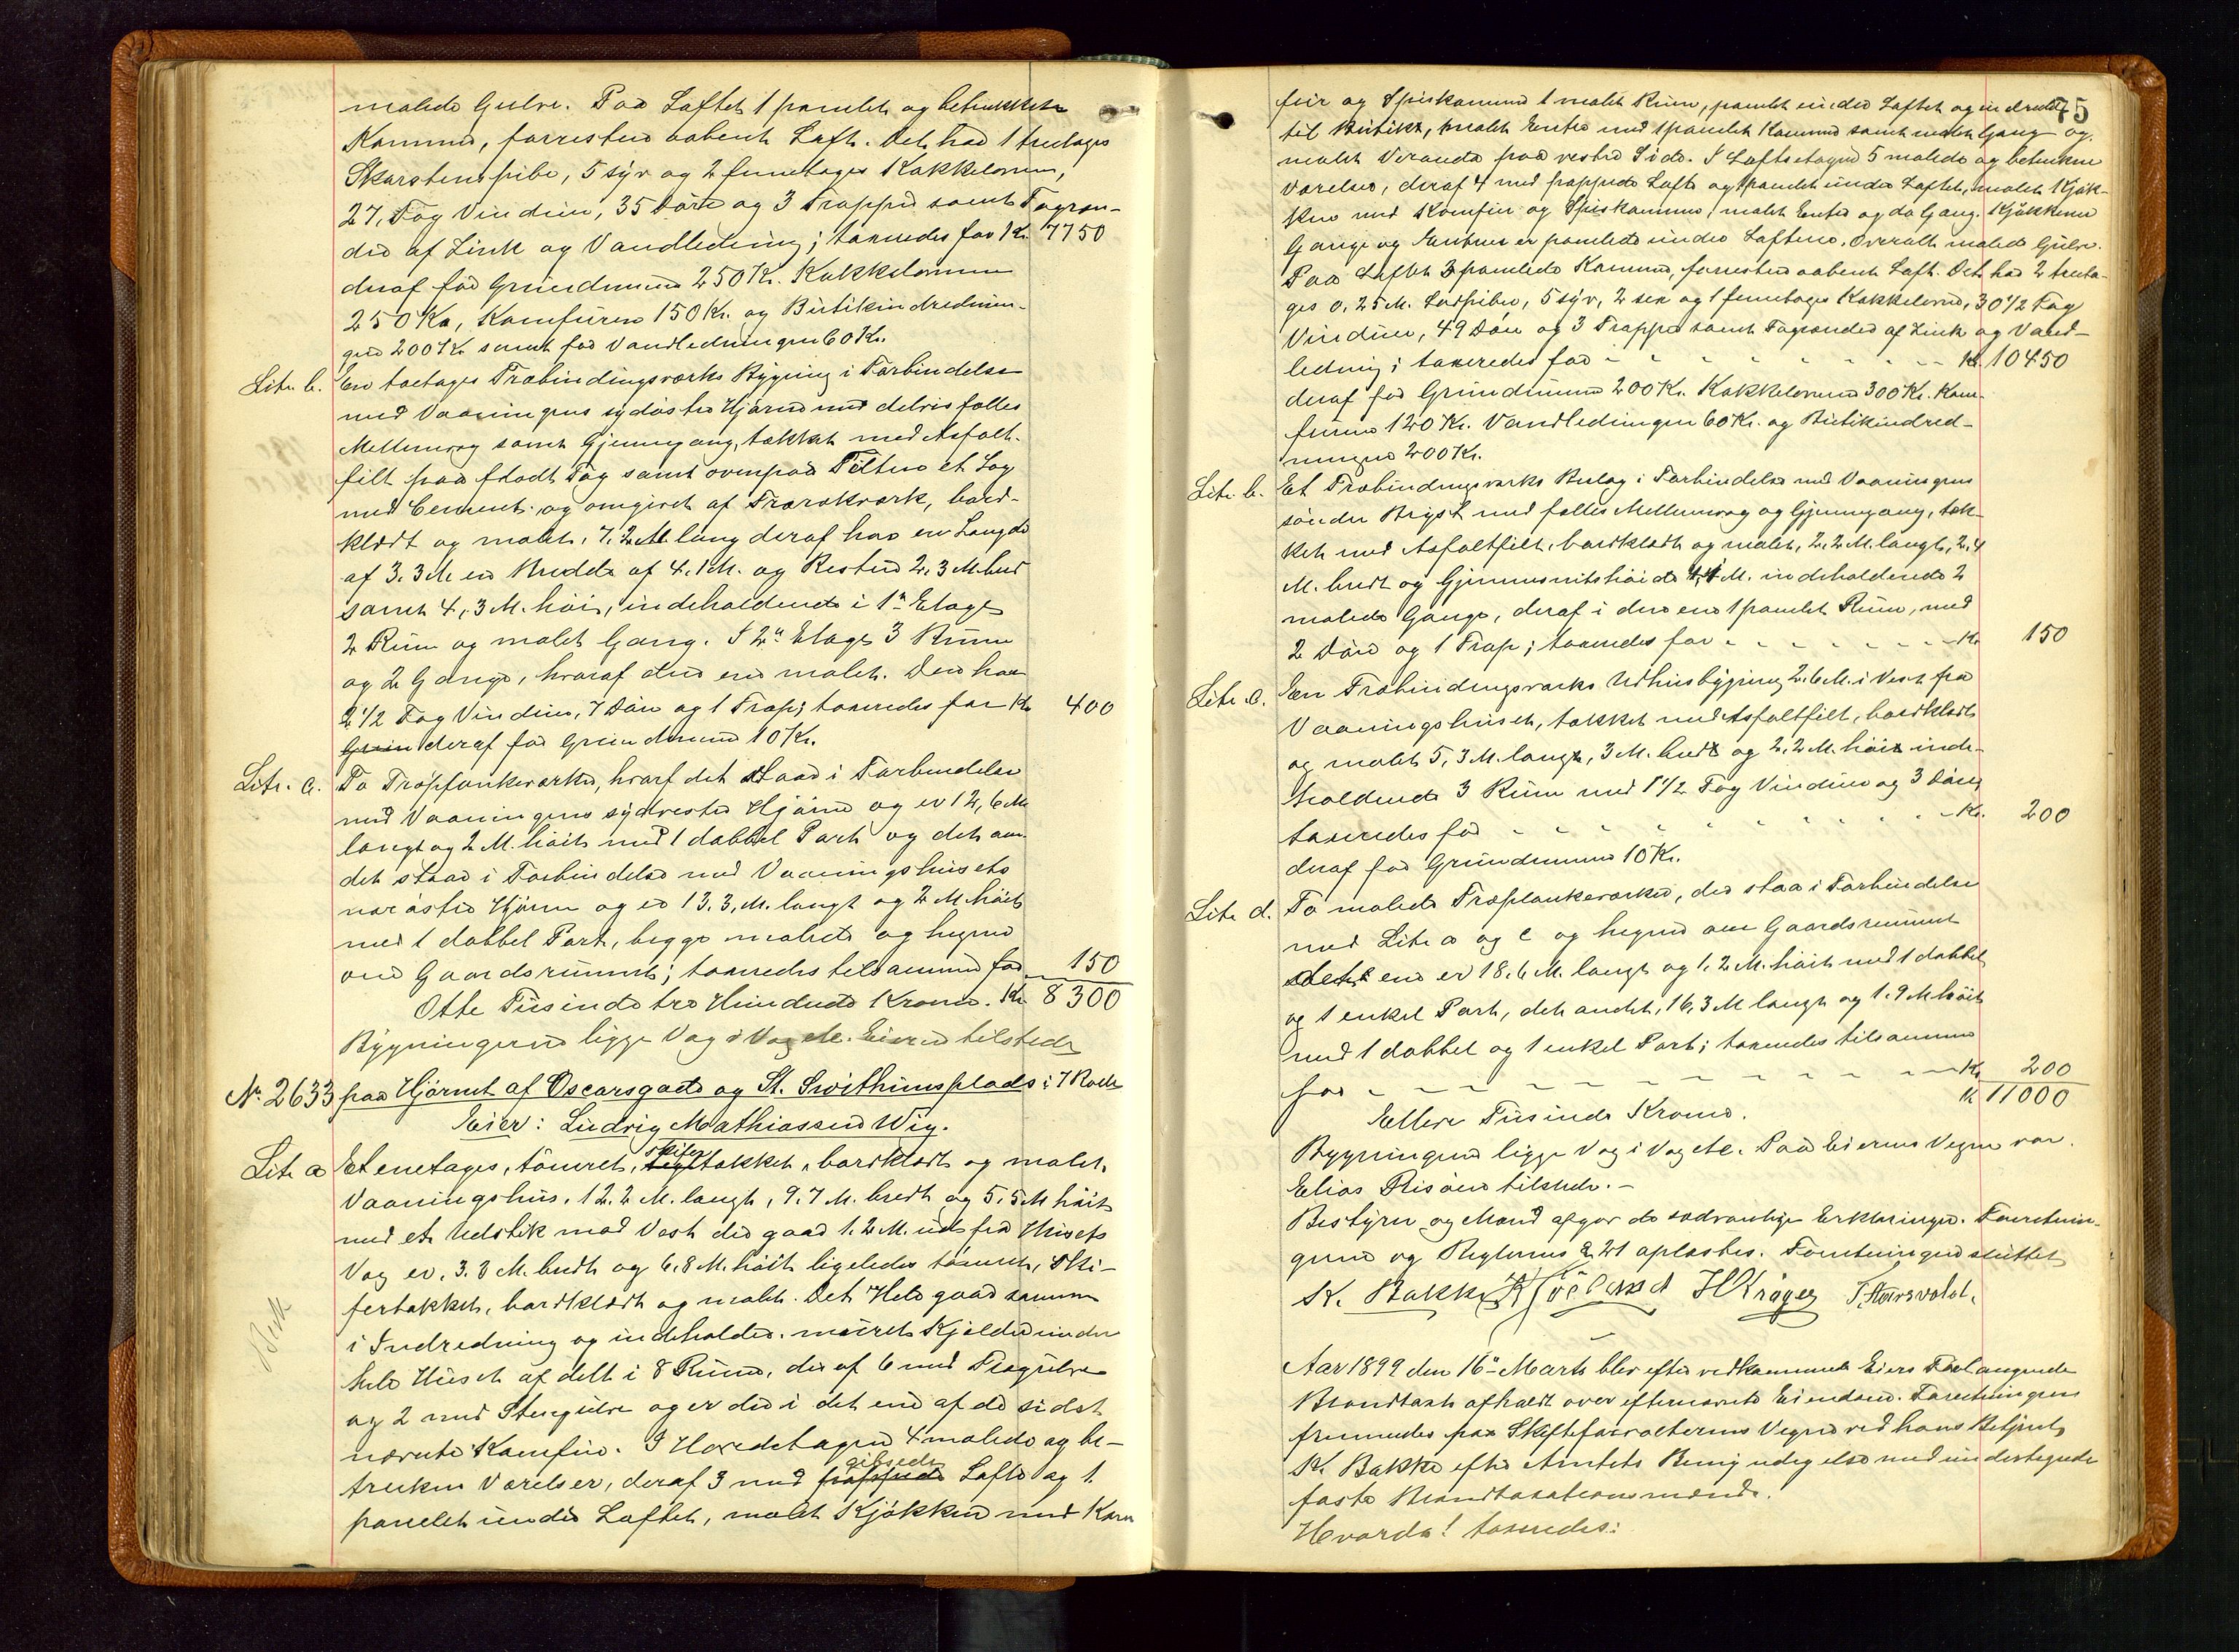 malede Gulve. Paa Loftet 1 panelet og betrukket
Kammer, forresten aabent Loft. Det har 1 treetages
Skorstenspibe, 5 syv og 2 femetages Kakkelovne,
27, Fag Vinduer, 35 Döre og 3 Trapper samt Tagren-
der af Zink og Vandledning; taxeredes for Kr. 7750
deraf for Grundmuren 250 Kr. Kakkelovnene
250 Kr, Komfuren 150 Kr. og Butikindrednin-
gen 200 Kr samt for Vandledningen 60 Kr.
Litr. b. En toetages Træbindingsværks Bygning i Forbindelse
med Vaaningens sydöstre Hjörne med delvis fælles
Mellemvæg samt Gjennemgang, tækket med Asfalt-
filt paa fladt Tag samt ovenpaa Filten et Lag
med Cement og omgivet af Trærækværk, bord-
klædt og malet, 7,2 M. lang deraf har en Længde
af 3.3 M. en Bredde af 4.1 M. og Resten 2,3 M. bred
samt 4,3 M. höi, indeholdende i 1ste Etage
2 Rum og malet Gang. I 2den Etage 3 Rum
og 2 Gange, hvoraf den ene malet. Den har
2 1/2 Fag Vinduer, 7 Döre og 1 Trap; taxeredes for Kr 400
deraf for Grundmuren 10 Kr.
Litr. c. To Træplankeværker, hvoraf det staar i Forbindelse
med Vaaningens sydvestre Hjörne og er 12,6 M
langt og 2 M. höit med 1 dobbel Port og det an
det staar i Forbindelse med Vaaningshusets
nordöstre Hjörne og er 13.3, M. langt og 2 M höit
med 1 dobbel Port, begge malede og hegner
om Gaardsrummet; taxeredes tilsammen for 150
Otte Tusinde tre Hundrede Kroner. Kr 8300
Bygningerne ligge Væg i Væg etc. Eieren tilstede
No. 2633 paa Hjörnet af Oscarsgade og St. Swithunsplads i 7 Rode
Eier: Ludvig Mathiassen Wig.
Litr a Et enetages, tömret, skifertækket, bordklædt og malet
Vaaningshus, 12.2 M. langt, 9.7 M. bredt og 5,5 M höit
med et Udstik mod Vest der gaar 1.2 M. ud fra Husets
Væg er, 3.8 M. bredt og 6.8 M. höit ligeledes tömret, Ski-
fertækket, bordklædt og malet. Det Hele gaar sammen
i Indredning og indeholder muret Kjælder under
hele Huset afdelt i 8 Rum, deraf 6 med Trægulve
og 2 med Stengulve og er der i det ene af de sidst
nævnte Komfur. I Hovedetagen 4 malede og be-
trukne Værelser, deraf 3 med gibsede Lofte og 1
panelet under Loftet, malet Kjökken med Kom
75
fuir og Spiskammer 1 malet Rum, panelet under Loftet og indredet
til Butik, malet Entre med 1 panelet Kammer samt malet Gang og
malet Veranda paa vestre Side. I Loftsetagen 5 malede og betrukne
Værelser, deraf 4 med pappede Lofte og 1 panelet under Loftet, malet Kjök-
ken med Komfur og Spiskammer, malet Entre og do Gang. Kjökkener
Gange og Entreer er panelede under Loftene. Overalt malede Gulve.
Paa Loftet 3 panelede Kammer, forresten aabent Loft. Det har 2 treeta-
ges 0,25 M. Lufpiber, 5 syv, 2 sex og 1 femetages Kakkelovne, 30 1/2 Fag
Vinduer, 49 Döre og 3 Trapper samt Tagrender af Zink og Vand-
ledning; taxeredes for Kr. 10450
deraf for Grundmuren 200 Kr. Kakkelovnene 300 Kr. Kom-
furene 120 Kr. Vandledningen 60 Kr. og Butikindred-
ningen 200 Kr.
Litr. b. Et Træbindingsværks Bislag i Forbindelse med Vaaningens
söndre Bryst med fælles Mellemvæg og Gjennemgang, tæk-
ket med Asfaltfilt, bordklædt og malet, 2,2 M. langt, 2,4
M. bredt og Gjennemsnitshöide 4,4 M. indeholdende 2
malede Gange, deraf i den ene 1 panelet Rum, med
2 Döre og 1 Trap; taxeredes for Kr 150
Litr. c. En Træbindingsværks Udhusbygning 2.6 M. i Vest fra
Vaaningshuset, tækket med Asfaltfilt, bordklædt
og malet 5,3 M. langt, 3 M. bredt og 2,2 M. höit inde-
holdende 3 Rum med 1 1/2 Fag Vinduer og 3 Döre;
taxeredes for Kr. 200
deraf for Grundmuren 10 Kr.
Litr d. To malede Træplankeværker, der staa i Forbindelse
med Litr a og c og hegner om Gaardsrummet
det ene er 18.6 M. langt og 1.2 M. höit med 1 dobbel
og 1 enkel Port, det andet, 16,3 M langt og 1.9 M höit
med 1 dobbel og 1 enkel Port; taxeredes tilsammen
for Kr 200
Kr 11000
Elleve Tusinde Kroner.
Bygningerne ligge Væg i Væg etc. Paa Eierens Vegne var
Elias Risöen tilstede. -
Bestyrer og Mænd afgav de sædvanlige Erklæringer. Forretnin-
gerne og Reglernes § 21 oplæstes. Forretningen sluttet
K. Bakke Hröland H Kröger T. Haarsvold.
Aar 1899 den 16de Marts blev efter vedkommende Eiers Forlangende
Brandtaxt afholdt over efternævnte Eiendom. Forretningen
fremmedes paa Skifteforvalterens Vegne ved hans Betjent
K. Bakke efter Amtets Bemyndigelse med undertegnede
faste Brandtaxationsmænd.
Hvorda! taxeredes: